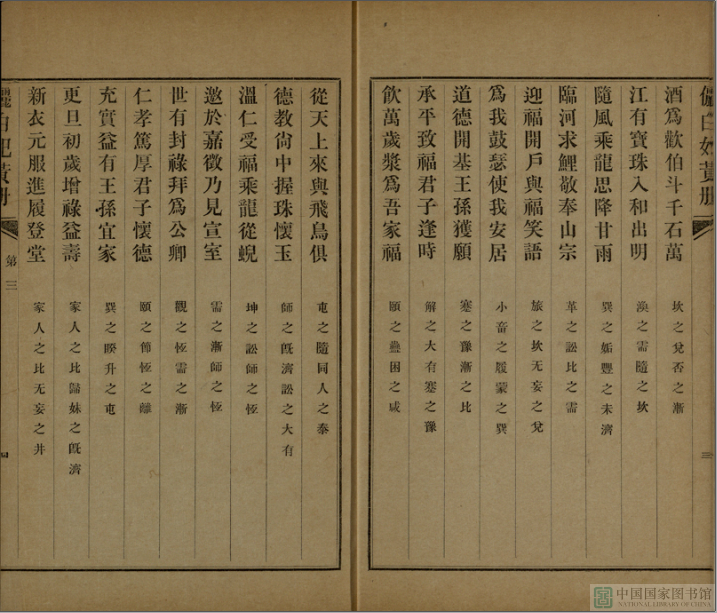 酒爲歡伯斗千石萬 坎之兌否之漸
江有寶珠入和出明 渙之需隨之坎
隨風乘龍思降甘雨 巽之姤豐之未濟
臨河求鯉敬奉山宗 革之訟比之需
迎福開戶與福笑語 旅之坎无妄之兌
爲我鼓瑟使我安居 小畜之履蒙之巽
道德開基王孫獲願 蹇之豫漸之比
承平致福君子逢時 解之大有蹇之豫
飲萬歲漿爲吾家福 頤之蠱困之咸
三
從天上來與飛鳥俱 屯之隨同人之泰
德教尚中握珠懷玉 師之旣濟訟之大有
溫仁受福乘龍從蜺 坤之訟師之恆
邀於嘉徵乃見宣室 需之漸師之恆
世有封祿拜爲公卿 觀之恆需之漸
仁孝篤厚君子懷德 頤之節恆之離
充實益有王孫宜家 巽之睽升之屯
更旦初歲增祿益壽 家人之比歸妹之旣濟
新衣元服進履登堂 家人之比无妄之井
第三
四
中国国家图书馆
NATIONAL LIBRARY OF CHINA